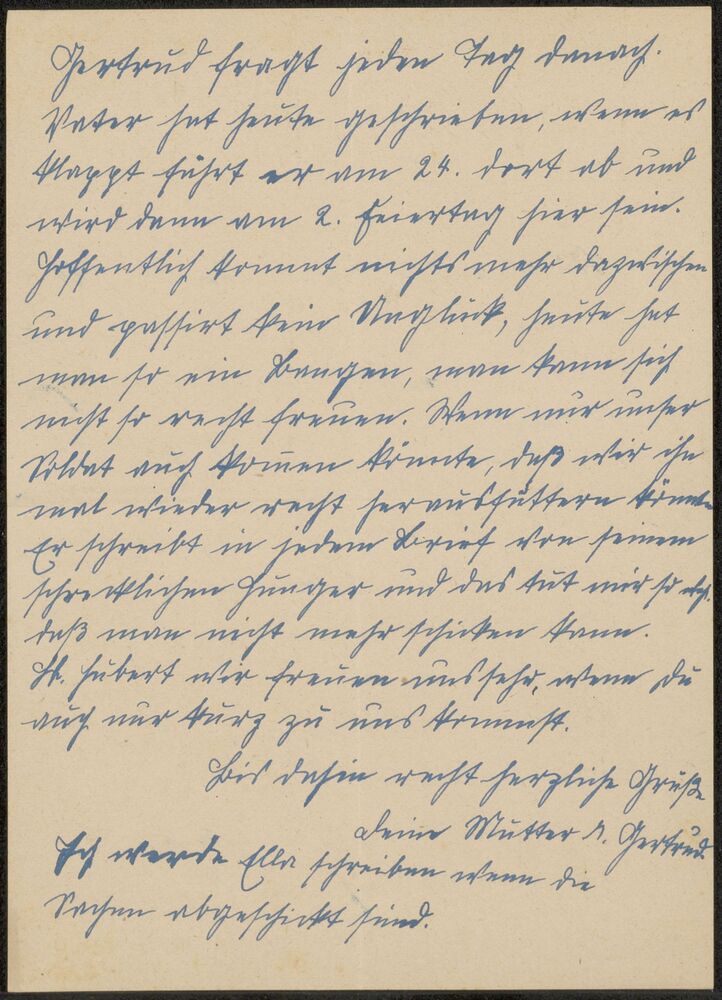 Gertrud fragt jeden Tag danach.
Vater hat heute geschrieben, wenn es
klappt fährt er am 24. dort ab und
wird dann am 2. Feiertag hier sein.
Hoffentlich kommt nichts mehr dazwischen
und passirt kein Unglück, heute hat
man so ein Bangen, man kann sich
nicht so recht freuen. Wenn nur unser
Soldat auch komen könnte, daß wir ihn
mal wieder recht herausfuttern könnten
Er schreibt in jedem Brief von seinem
schrecklichen Hunger und das tut mir so weh.
daß man nicht mehr schicken kann.
Lb. Hubert wir freuen uns sehr, wenn Du
auch nur kurz zu uns kommst.
Bis dahin recht herzliche Grüße
Deine Mutter u. Gertrud.
Ich werde Ella schreiben wenn die
Sachen abgeschickt sind.